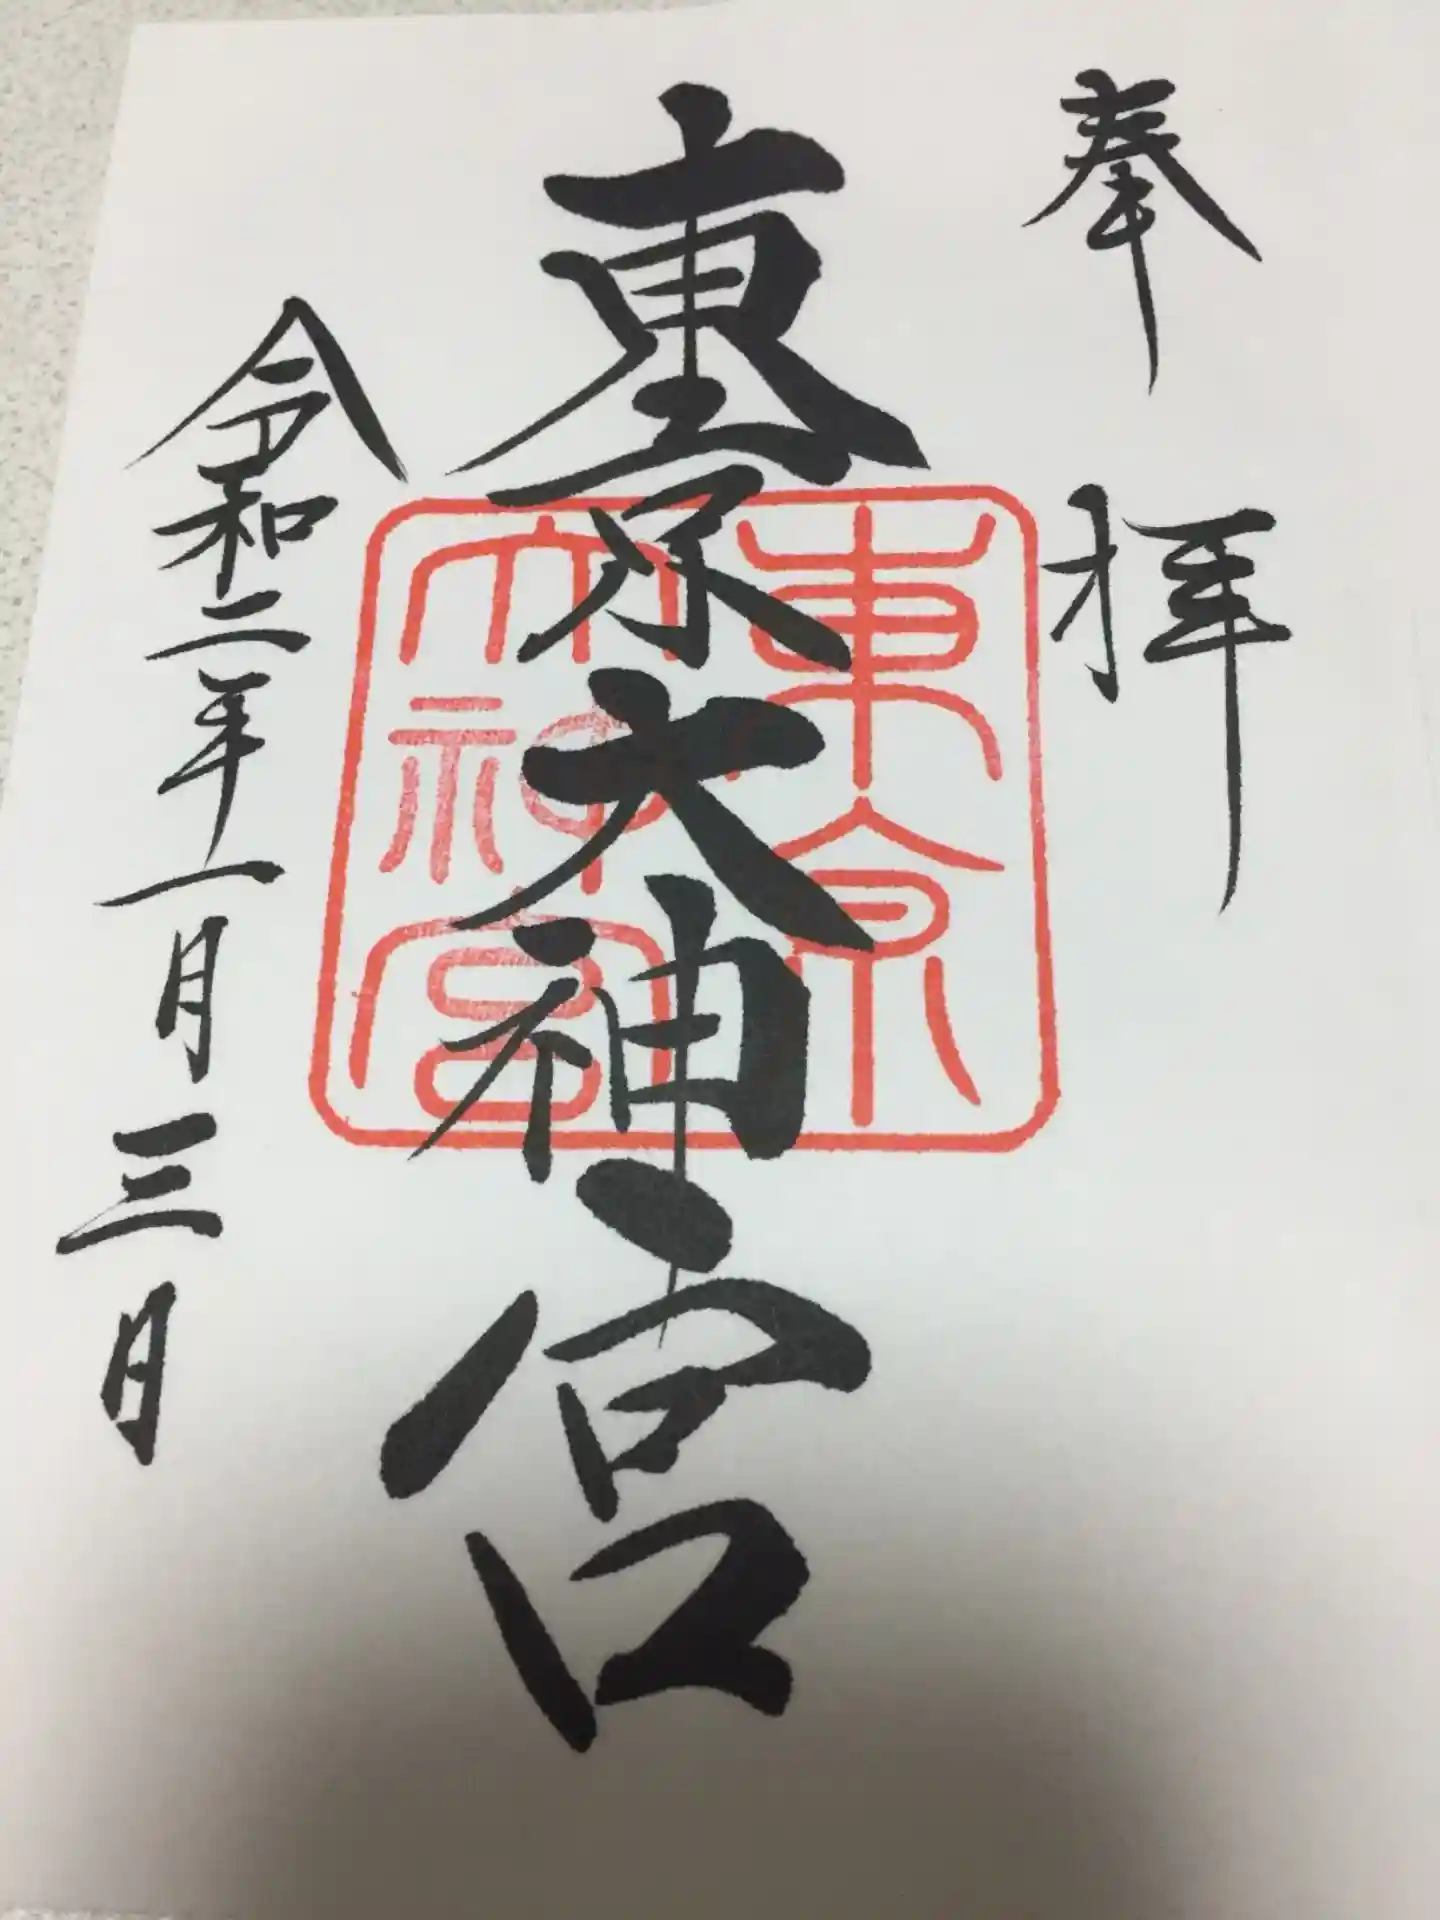 奉拝
東京大神宮
東京
大神宮
令和二年一月三日